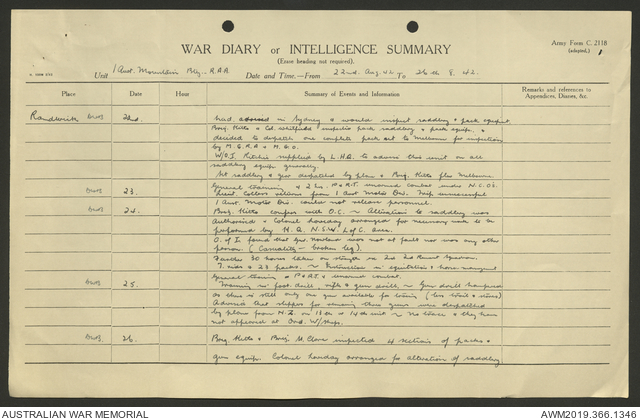 Army Form C. 2118
(adapted.)
WAR DIARY or INTELLIGENCE SUMMARY
(Erase heading not required).
Unit 1 Aust. Mountain Bty., R.A.A. Date and Time.—From 22nd Aug. 42 To 26th 8. 42.
Place Date Hour Summary of Events and Information Remarks and references to Appendices, Diaries, &c.
Randwick 22nd. had in Sydney & would inspect saddlery & pack equipt.
Brig. Hitts & Col. Whitfield inspected pack saddlery & pack equip. &
decided to despatch one complete pack set to Melbourne for inspection
by M.G.R.A & M.G.O.
W/O.I. Ritchie supplied by L.H.Q. to advise this unit on all
saddlery equip. generally.
set saddlery & gear despatched by plane & Brig. Hitts flew Melbourne.
23. General training & 2 hrs. P & R.T. unarmed combat under N.C.O's.
Lieut. returns from 1 Aust Motor Div. Trip unsuccessful
1 Aust. Motor Div. could not release personnel.
24. Brig. Hitts confers with O.C. ~ Alteration to saddlery was
authorised & Colonel Loveday arranged for necessary work to be
performed by H.Q. N.S.W. L of C. area.
C. of I. found that Gnr. was not at fault nor was any other
person. (Casualty - broken leg).
Further 30 horses taken on strength ex 2nd Remount Squadron.
7 rides & 23 packs. ~ Instruction in equitation & horse management
25. General training ~ P & R.T. & unarmed combat.
Training in foot drill, rifle & gun drill. ~ Gun drill hampered
as there is still only one gun available for training (less & stores)
Advised that for remaining three guns were despatched
by plane from N.Z. on 13th or 14th inst ~ No trace & they have
not appeared at Ord. W/shops.
26. Brig. Hitts & Brig. inspected 4 sections of packs &
gun equip. Colonel Loveday arranged for alteration of saddlery
AUSTRALIAN WAR MEMORIAL
AWM2019.366.1346